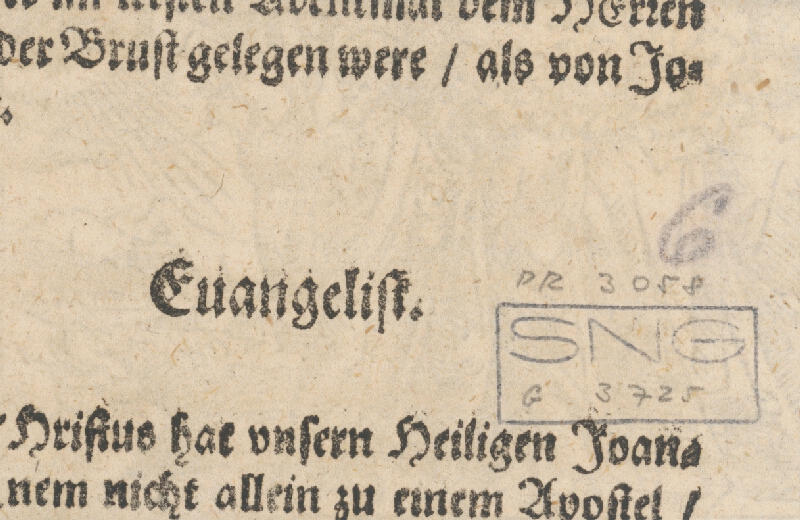 Abentmal dem HErren
der Brust gelegen were / als von Jo-
Euangelist.
6
PR 3058
SNG
G 3725
Hristus hat vnsern Heiligen Joan-
nem nicht allein zu einem Apostel /